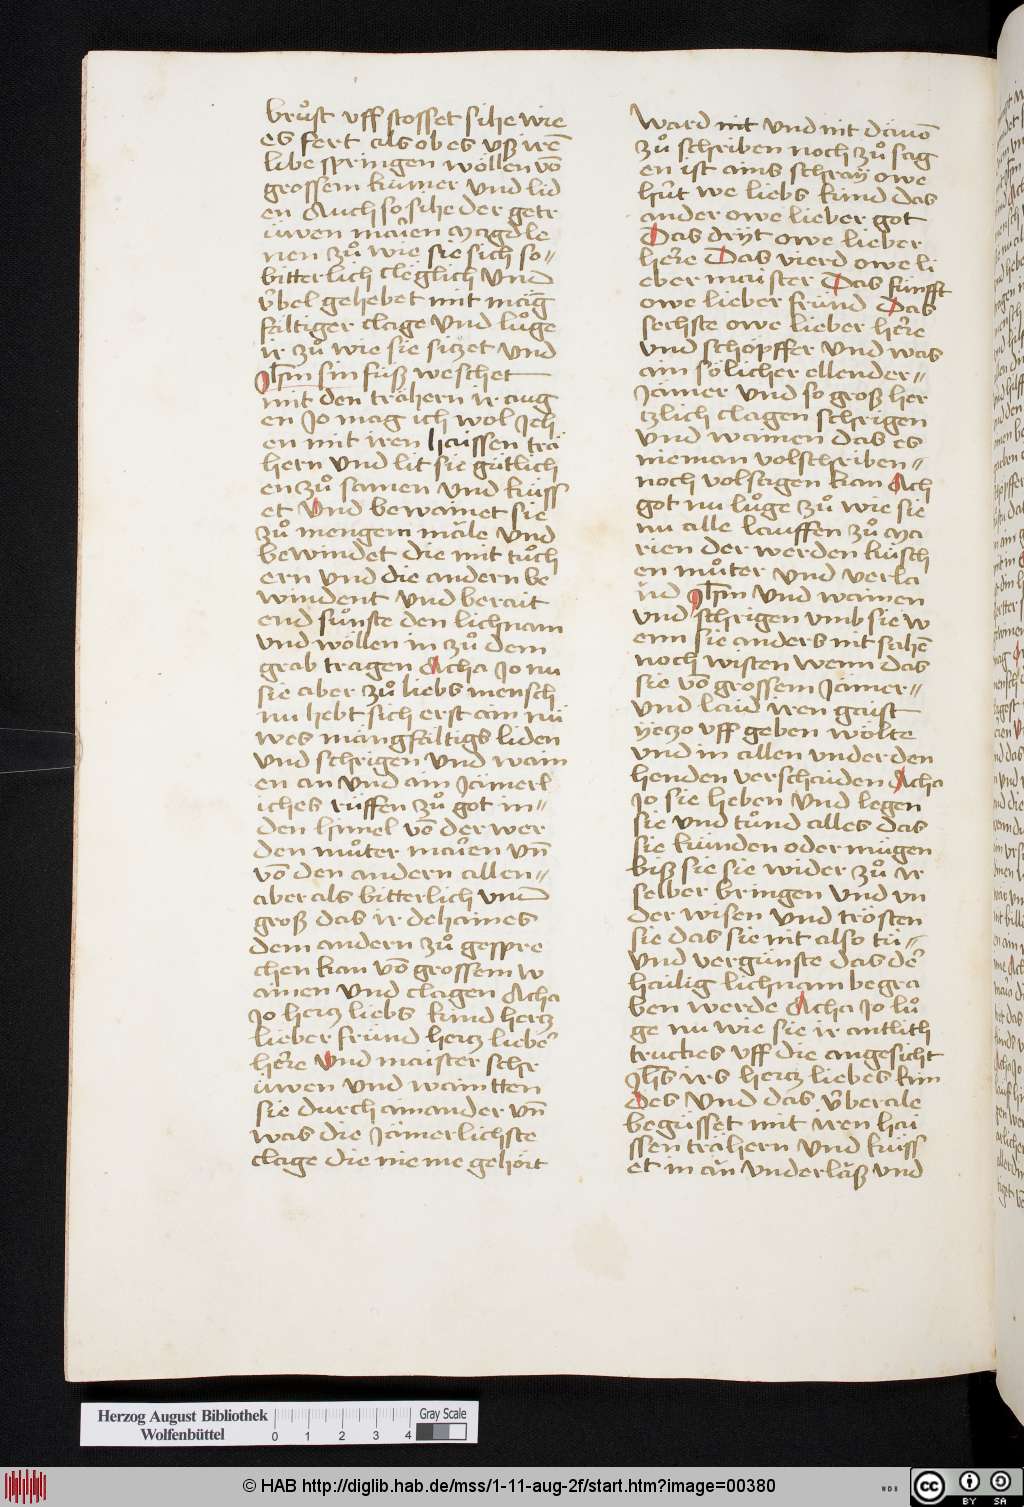 bruͦst vff stosset sihe wie
es fert als ob es vß irē
libe springen wöllen vō
grossem kumer vnd lid
en Auch so sihe der getr
üwen mariien Magdle
nen zuͦ wie sie sich so⸗
bitterlich cleglich vnd
v̈bel gehebet mit mäg
faltiger clage vnd luͦge
ir zuͦ wie sie siczet vnd
Jhm sin füß weschet
mit den trähern ir aug
en Jo mag ich wol Jch
en mit iren haissen trä
hern vnd lit sie gütlich
en zuͦ samen vnd küss
et Vnd bewainet sie
zuͦ mengem måle vnd
bewindet die mit tuͦch
ern vnd die andern be
windent vnd berait
end suͦnste den lichnam
vnd wöllen in zuͦ dem
grab tragen Acha Jo nu
sie aber zuͦ liebs mensch
nu hebt sich erst ain nü
wes mangfaltigs liden
vnd schrigen vnd wain
en an vnd ain Jämerl
iches rüffen zuͦ got in⸗
den himel vō der wer
den muͦter mariien vn̄
vō den andern allen⸗
aber als bitterlich vnd
groß das ir dehaines
dem andern zuͦ gespre
chen kan vō grossem w
ainen vnd clagen Acha
Jo hercz liebs kind hercz
lieber fründ hercz lieber
herre Vnd maister schr
üwen vnd waintten
sie durch ainander vn̄
was die Jämerlichste
clage die nie me gehört
Ward nit vnd nit dauō
zuͦ schriben noch zuͦ sag
en ist ains schray owe
hüt we liebs kind das
ander owe lieber got
Das dryt owe lieber
herre Das vierd owe li
eber maister Das fünfft
owe lieber fründ Das
sechste owe lieber herre
vnd schöpffer vnd was
ain sölicher ellender⸗
Jämer vnd so groß her
czlich clagen schrigen
vnd wainen das es
nieman volschriben⸗
noch volsagen kan Ach
got nu luͦge zuͦ wie sie
nu alle lauffen zuͦ Ma
rien der werden küsch
en muͦter vnd verla
nd Jhm vnd wainen
vnd schrigen vmb sie w
enn sie anders nit sahē
noch wisten wenn das
sie vō grossem Jämer⸗
vnd laid iren gaist
yeczo vff geben wölte
vnd in allen vnder den
henden verschaiden Acha
Jo sie heben vnd legen
sie vnd tuͦnd alles das
sie künden oder mügen
biß sie sie wider zuͦ ir
selber bringen vnd vn
der wisen vnd trösten
sie das sie nit also tü⸗
vnd vergünste das der
hailig lichnam begra
ben werde Acha Jo luͦ
ge nu wie sie ir antlith
truckes vff die angesicht
Jhs irs hercz liebes kin
des Vnd das v̈berale
begüsset mit iren hai
ssen trähern vnd küss
et in än vnderläß vnd
Herzog August Bibliothek
Wolfenbüttel
0 1 2 3 4
Gray Scale
© HAB http://diglib.hab.de/mss/1-11-aug-2f/start.htm?image=00380
WDB
cc BY SA